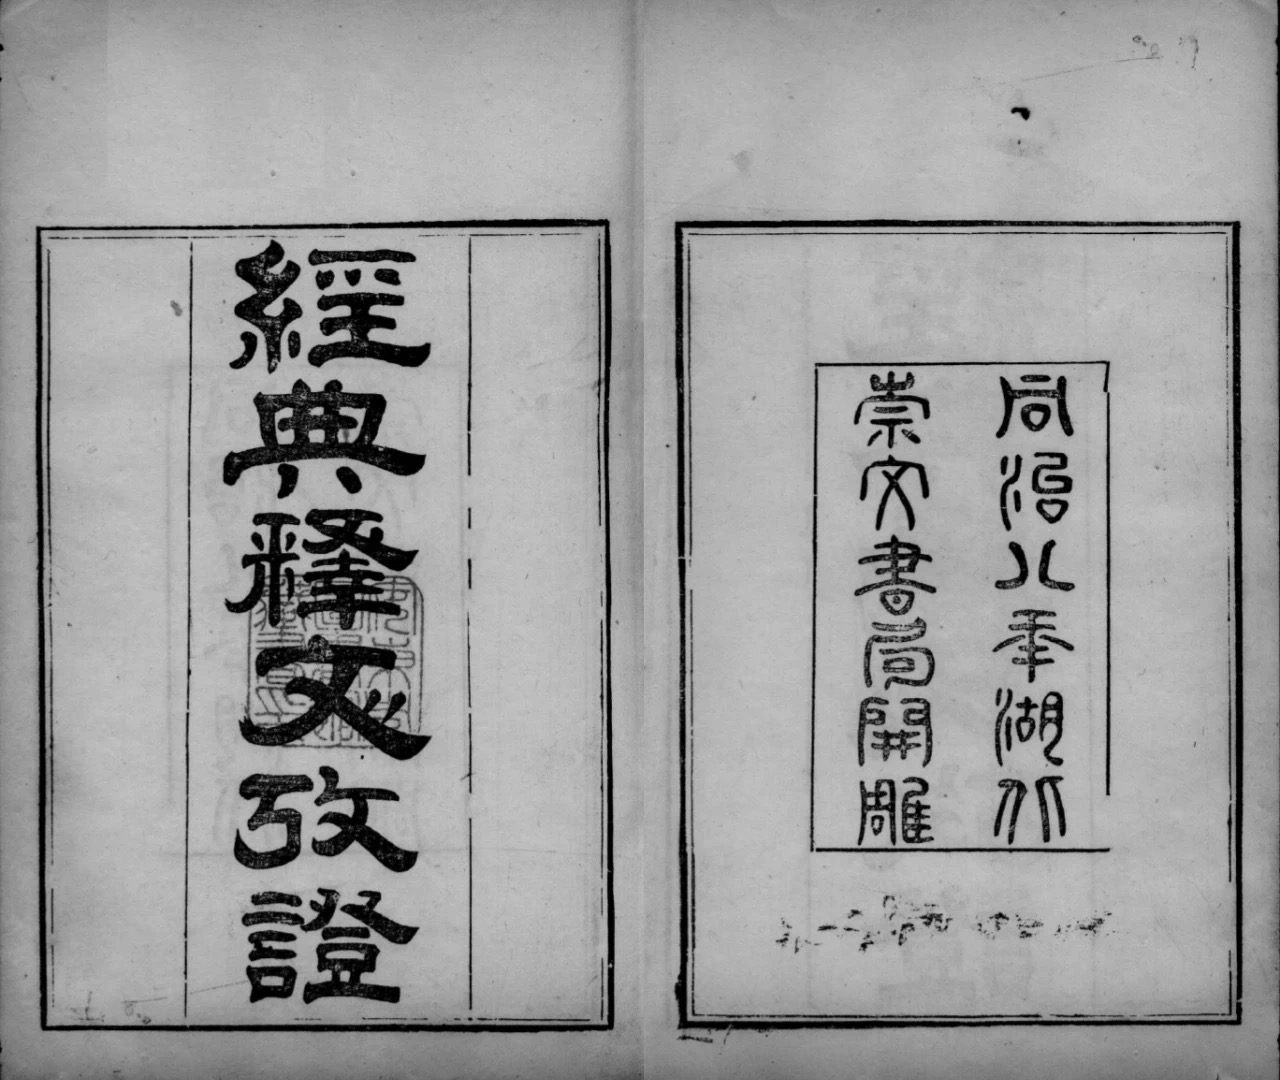 同治八秊湖北
崇文書局開雕
經典釋文攷證